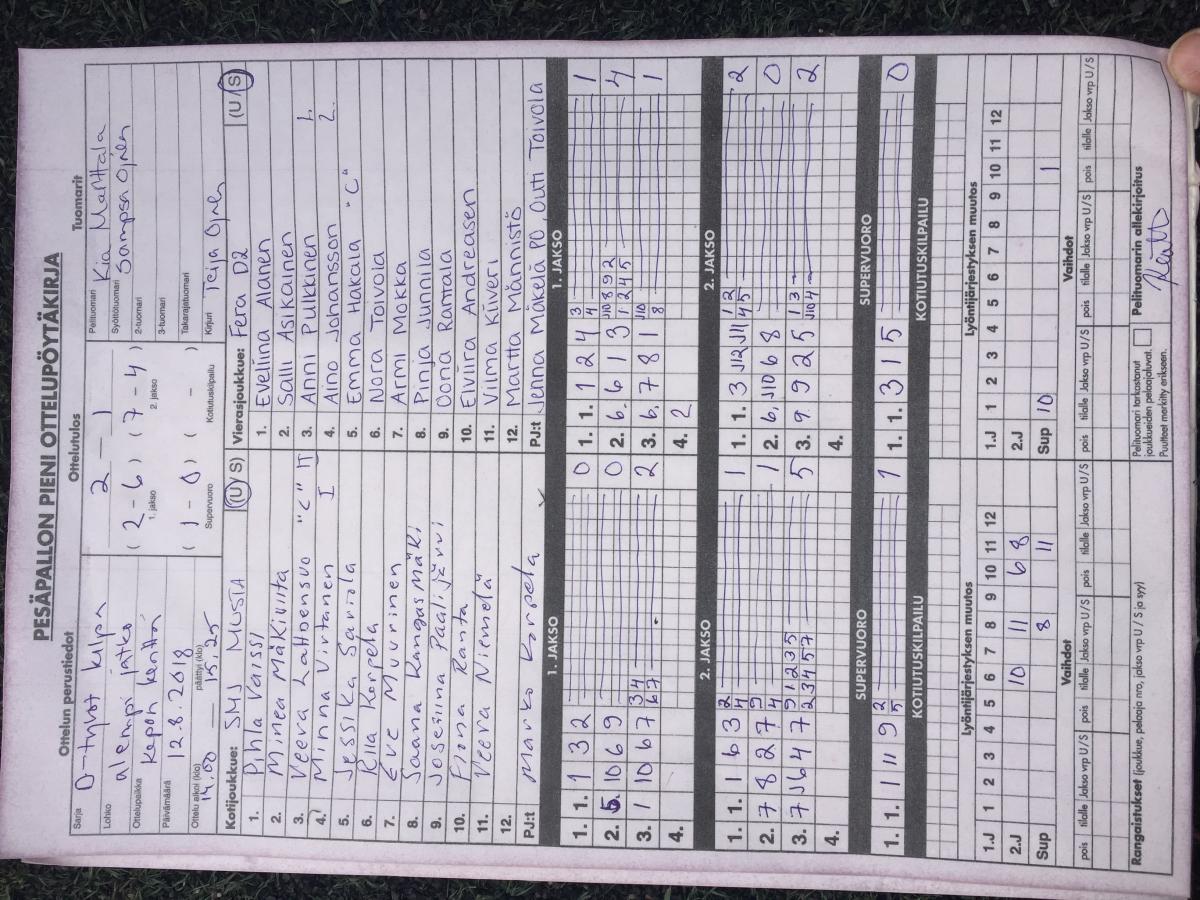 PESÄPALLON PIENI OTTELUPÖYTÄKIRJA
Ottelun perustiedot
Ottelutulos
Tuomarit
Sarja D-tytöt kilpa
Lohko alempi jatko
Ottelupaikka Kepon kenttä
Päivämäärä 12.8.2018
Ottelu alkoi (klo) 14.00 päättyi (klo) 15.25
2 – 1
( 2 – 6 ) ( 7 – 4 )
1. jakso 2. jakso
( 1 – 0 ) ( – )
Supervuoro Kotiutuskilpailu
Pelituomari Kia Manttala
Syöttötuomari Sampsa Ojnen
2-tuomari
3-tuomari
Takarajatuomari
Kirjuri Teija Ojnen
Kotijoukkue: SMJ MUSTA (U/S)
1. Pihla Varissi
2. Minea Mäkiviita
3. Veera Lattoensuo "C" II
4. Minna Virtanen I
5. Jessika Sariola
6. Rilla Korpela
7. Eve Muurinen
8. Saana Kangasmäki
9. Josefiina Paalijärvi
10. Fiona Ranta
11. Veera Niemelä
12.
PJ:t Marko Korpela
Vierasjoukkue: Fera D2 (U/S)
1. Eveliina Alanen
2. Salli Asikainen
3. Anni Pulkkinen 1.
4. Aino Johansson 2.
5. Emma Hakala "C"
6. Nora Toivola
7. Armi Mokka
8. Pinja Junnila
9. Oona Ramala
10. Elviira Andreasen
11. Vilma Kiveri
12. Martta Männistö
PJ:t Jenna Mäkelä PO, Outi Toivola
1. JAKSO
1. 1. 1 3 2 0
2. 5. 10 6 9 0
3. 1 10 6 7 3 4 6 7 2
4.
1. JAKSO
1. 1. 1 2 4 3 4 1
2. 6. 6 1 3 J10 8 9 2 1 2 4 5 4
3. 6. 7 8 1 J10 8 1
4. 2
2. JAKSO
1. 1. 1 6 3 2 2 4 1
2. 7 8 2 7 4 9 4 1
3. 7 J6 4 7 9 1 2 3 5 2 3 4 5 7 5
4.
2. JAKSO
1. 1. 3 J12 J11 1 2 4 5 2
2. 6. J10 6 8 0
3. 9. 9 2 5 1 3 J10 4 2
4.
SUPERVUORO
1. 1. 1 11 9 2 5 1
SUPERVUORO
1. 1. 3 1 5 0
KOTIUTUSKILPAILU
KOTIUTUSKILPAILU
Lyöntijärjestyksen muutos
1.J 1 2 3 4 5 6 7 8 9 10 11 12
2.J 10 11 6 8
Sup 8 11
Lyöntijärjestyksen muutos
1.J 1 2 3 4 5 6 7 8 9 10 11 12
2.J
Sup 10 1
Vaihdot
pois tilalle Jakso vrp U/S pois tilalle Jakso vrp U/S pois tilalle Jakso vrp U/S
Vaihdot
pois tilalle Jakso vrp U/S pois tilalle Jakso vrp U/S pois tilalle Jakso vrp U/S
Rangaistukset (joukkue, pelaaja nro, jakso vrp U / S ja syy)
Pelituomari tarkastanut
joukkueiden pelaajaluvat.
Puutteet merkitty erikseen.
Pelituomarin allekirjoitus